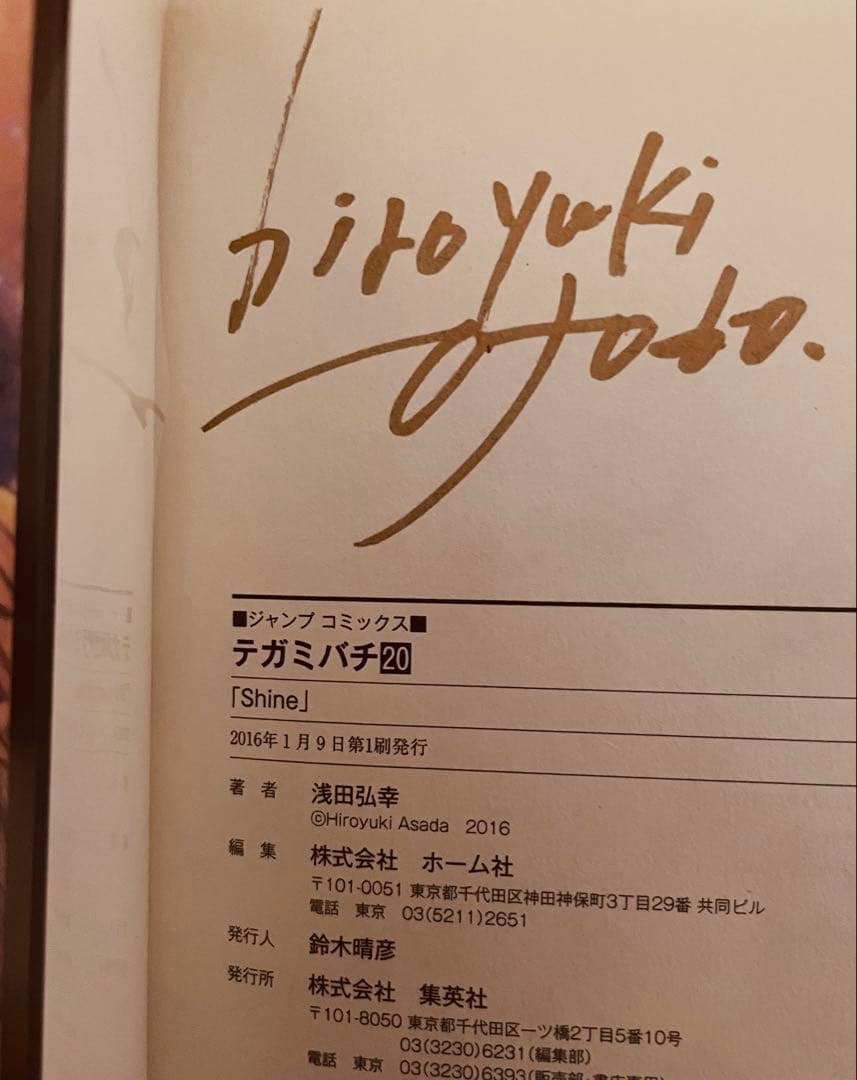 hiroyuki
asada.
■ジャンプ コミックス■
テガミバチ20
「Shine」
2016年1月9日第1刷発行
著者 浅田弘幸
©Hiroyuki Asada 2016
編集 株式会社 ホーム社
〒101-0051 東京都千代田区神田神保町3丁目29番 共同ビル
電話 東京 03(5211)2651
発行人 鈴木晴彦
発行所 株式会社 集英社
〒101-8050 東京都千代田区一ツ橋2丁目5番10号
03(3230)6231(編集部)
電話 東京 03(3230)6393(販売部・書店専用)